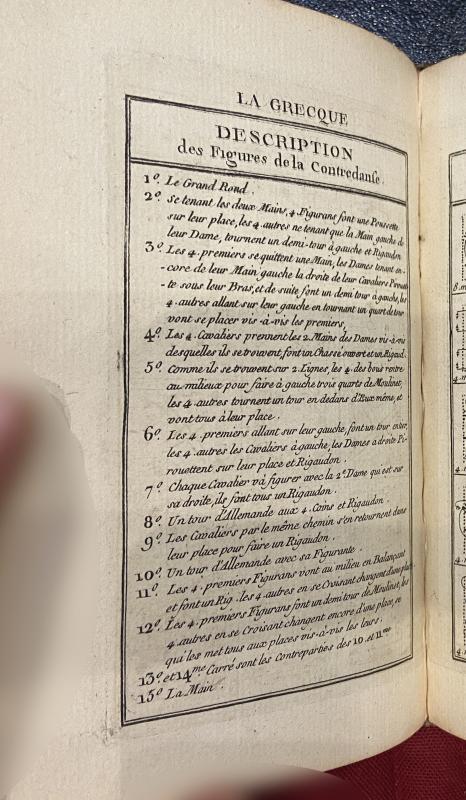 LA GRECQUE
DESCRIPTION
des Figures de la Contredanse.
1º. Le Grand Rond.
2º. Se tenant les deux Mains, 4. Figurans font une Poussette
sur leur place, les 4. autres ne tenant que la Main gauche de
leur Dame, tournent un demi-tour à gauche et Rigaudon
3º. Les 4. premiers se quittent une Main, les Dames tenant en-
-core de leur Main gauche la droite de leur Cavaliers
-te sous leur Bras, et de suite font un demi tour à gauche, les
4. autres allant sur leur gauche en tournant un quart de tour
vont se placer vis-à-vis les premiers,
4º. Les 4. Cavaliers prennent les 2. Mains des Dames vis-à-vis
desquelles ils se trouvent, font un Chassé ouvert et un Rigaud.
5º. Comme ils se trouvent sur 2. Lignes, les 4. des bouts rentre
au milieux pour faire à gauche trois quarts de Moulinet,
les 4. autres tournent un tour en dedans d'Eux même, et
vont tous à leur place.
6º. Les 4. premiers allant sur leur gauche, font un tour entier,
les 4. autres les Cavaliers à gauche, les Dames a droite Pi-
rouettent sur leur place et Rigaudon.
7º. Chaque Cavalier và figurer avec la 2.e Dame qui est sur
sa droite, ils font tous un Rigaudon.
8º. Un tour d'Allemande aux 4. Coins et Rigaudon.
9º. Les Cavaliers par le même chemin s'en retournent dans
leur place pour faire un Rigaudon.
10º. Un tour d'Allemande avec sa Figurante.
11º. Les 4. premiers Figurans vont au milieu en Balançant
et font un Rig. les 4. autres en se Croisant changent d'une place
12º. Les 4. premiers Figurans font un demi tour de Moulinet, les
4. autres en se Croisant changent encore d'une place, ce
qui les met tous aux places vis-à-vis les leurs.
13º. et 14.me Carré sont les Contreparties des 10 et 11.me
15º. La Main.